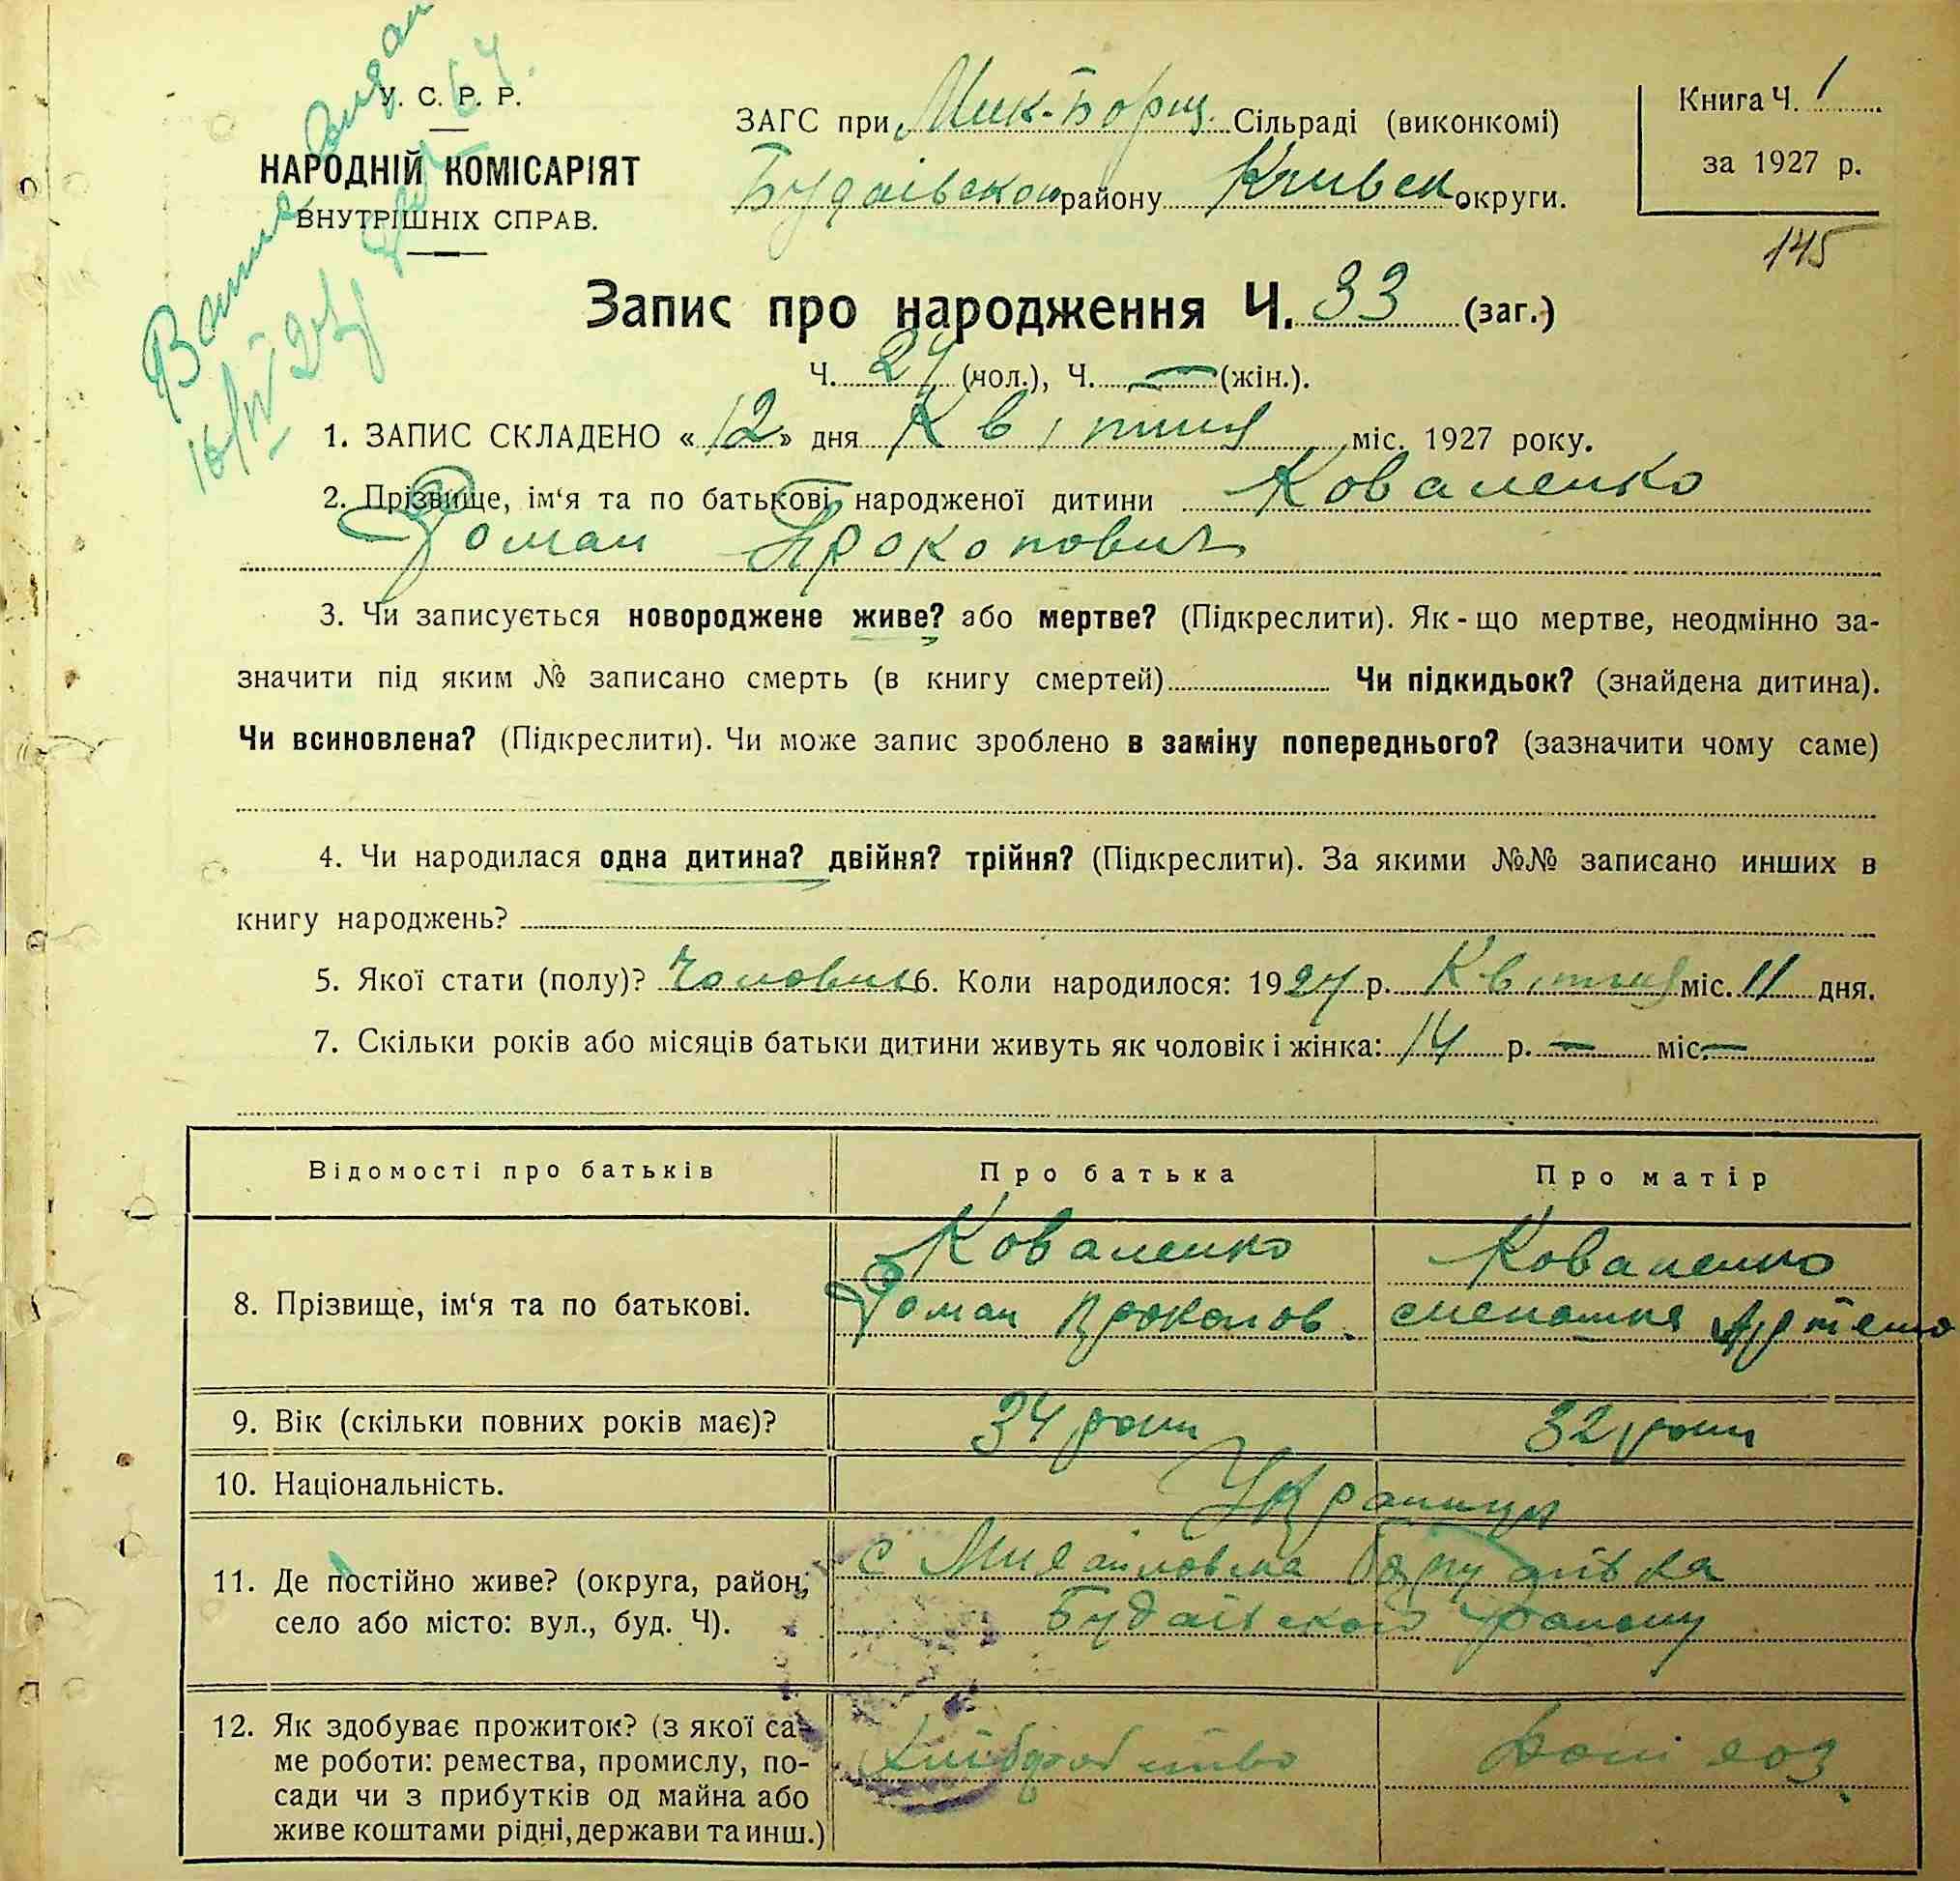 У. С. Р. Р.
НАРОДНІЙ КОМІСАРІЯТ
ВНУТРІШНІХ СПРАВ.
ЗАГС при Мик-Борщ. Сільраді (виконкомі)
Будаївском району Київск округи.
Книга Ч. 1
за 1927 р.
145
Запис про народження Ч. 33 (заг.)
Ч. 27 (чол.), Ч. — (жін.).
1. ЗАПИС СКЛАДЕНО «12» дня Квітня міс. 1927 року.
2. Прізвище, ім‘я та по батькові народженої дитини Коваленко
Роман Прокопович
3. Чи записується новороджене живе? або мертве? (Підкреслити). Як-що мертве, неодмінно за-
значити під яким № записано смерть (в книгу смертей) Чи підкидьок? (знайдена дитина).
Чи всиновлена? (Підкреслити). Чи може запис зроблено в заміну попереднього? (зазначити чому саме)
4. Чи народилася одна дитина? двійня? трійня? (Підкреслити). За якими №№ записано инших в
книгу народжень?
5. Якої стати (полу)? Чолович 6. Коли народилося: 1927 р. Квітня міс. 11 дня.
7. Скільки років або місяців батьки дитини живуть як чоловік і жінка: 14 р. — міс. —
Відомості про батьків Про батька Про матір
8. Прізвище, ім‘я та по батькові. Коваленко Коваленко
Роман Прокопов. степанида Артемо
9. Вік (скільки повних років має)? 34 роки 32 роки
10. Національність. Українци
11. Де постійно живе? (округа, район, с Михайловка Борщагівка
село або місто: вул., буд. Ч). Будаївского району
12. Як здобуває прожиток? (з якої са-
ме роботи: ремества, промислу, по- Хліборобство Дом гоз
сади чи з прибутків од майна або
живе коштами рідні, держави та инш.)